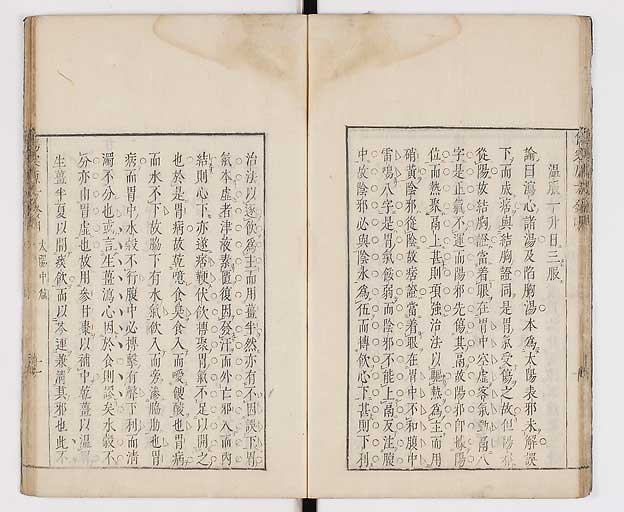 溫服一升日三服
論曰瀉心諸湯及陷胸湯本爲太陽表邪未解誤
下而成痞與結胸證同是胃氣受傷之故但陽
從陽故結胸證當着眼在胃中空虛客氣動膈八
字是正氣不運而陽邪先傷其膈故陽邪卽據陽
位而熱聚膈上甚則項強治法以驅熱爲主而用
硝黃陰邪從陰故痞證當着眼在胃中不和腹中
雷鳴八字是胃氣餒弱而陰邪不能上膈反注腹
中故陰邪必與陰水爲伍而搏飲心下甚則下利
治法以逐飲爲主而用薑半然亦有不因誤下胃
氣本虛者津液素匱復因發汗而外亡邪入而內
結則心下亦遂痞鞕伏飲搏聚胃氣不足以開之
也於是胃病故乾噫食臭食入而噯餿酸也胃病
而水不下故脇下有水氣飲入而旁滲脇肋也胃
病而胃中水穀不行腹中必搏擊有聲下利而清
濁不分也或言生薑瀉心因於食則誤矣水穀不
分亦由胃虛也故用參甘棗以補中乾薑以溫胃
生薑半夏以開痰飲而以芩連兼清其邪也此不
太陽中篇